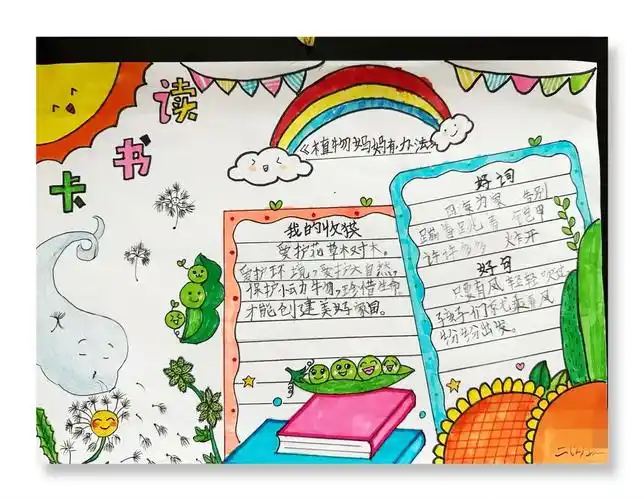 读
书
卡
《植物妈妈有办法》
我的收获
爱护花草树木。
爱护环境,爱护大自然,
保护小动物,珍惜生命
才能创建美好家园。
好词
四海为家 告别
铠甲
许许多多 炸开
好句
只要有风轻轻吹过
孩子们就乘着风
纷纷出发。